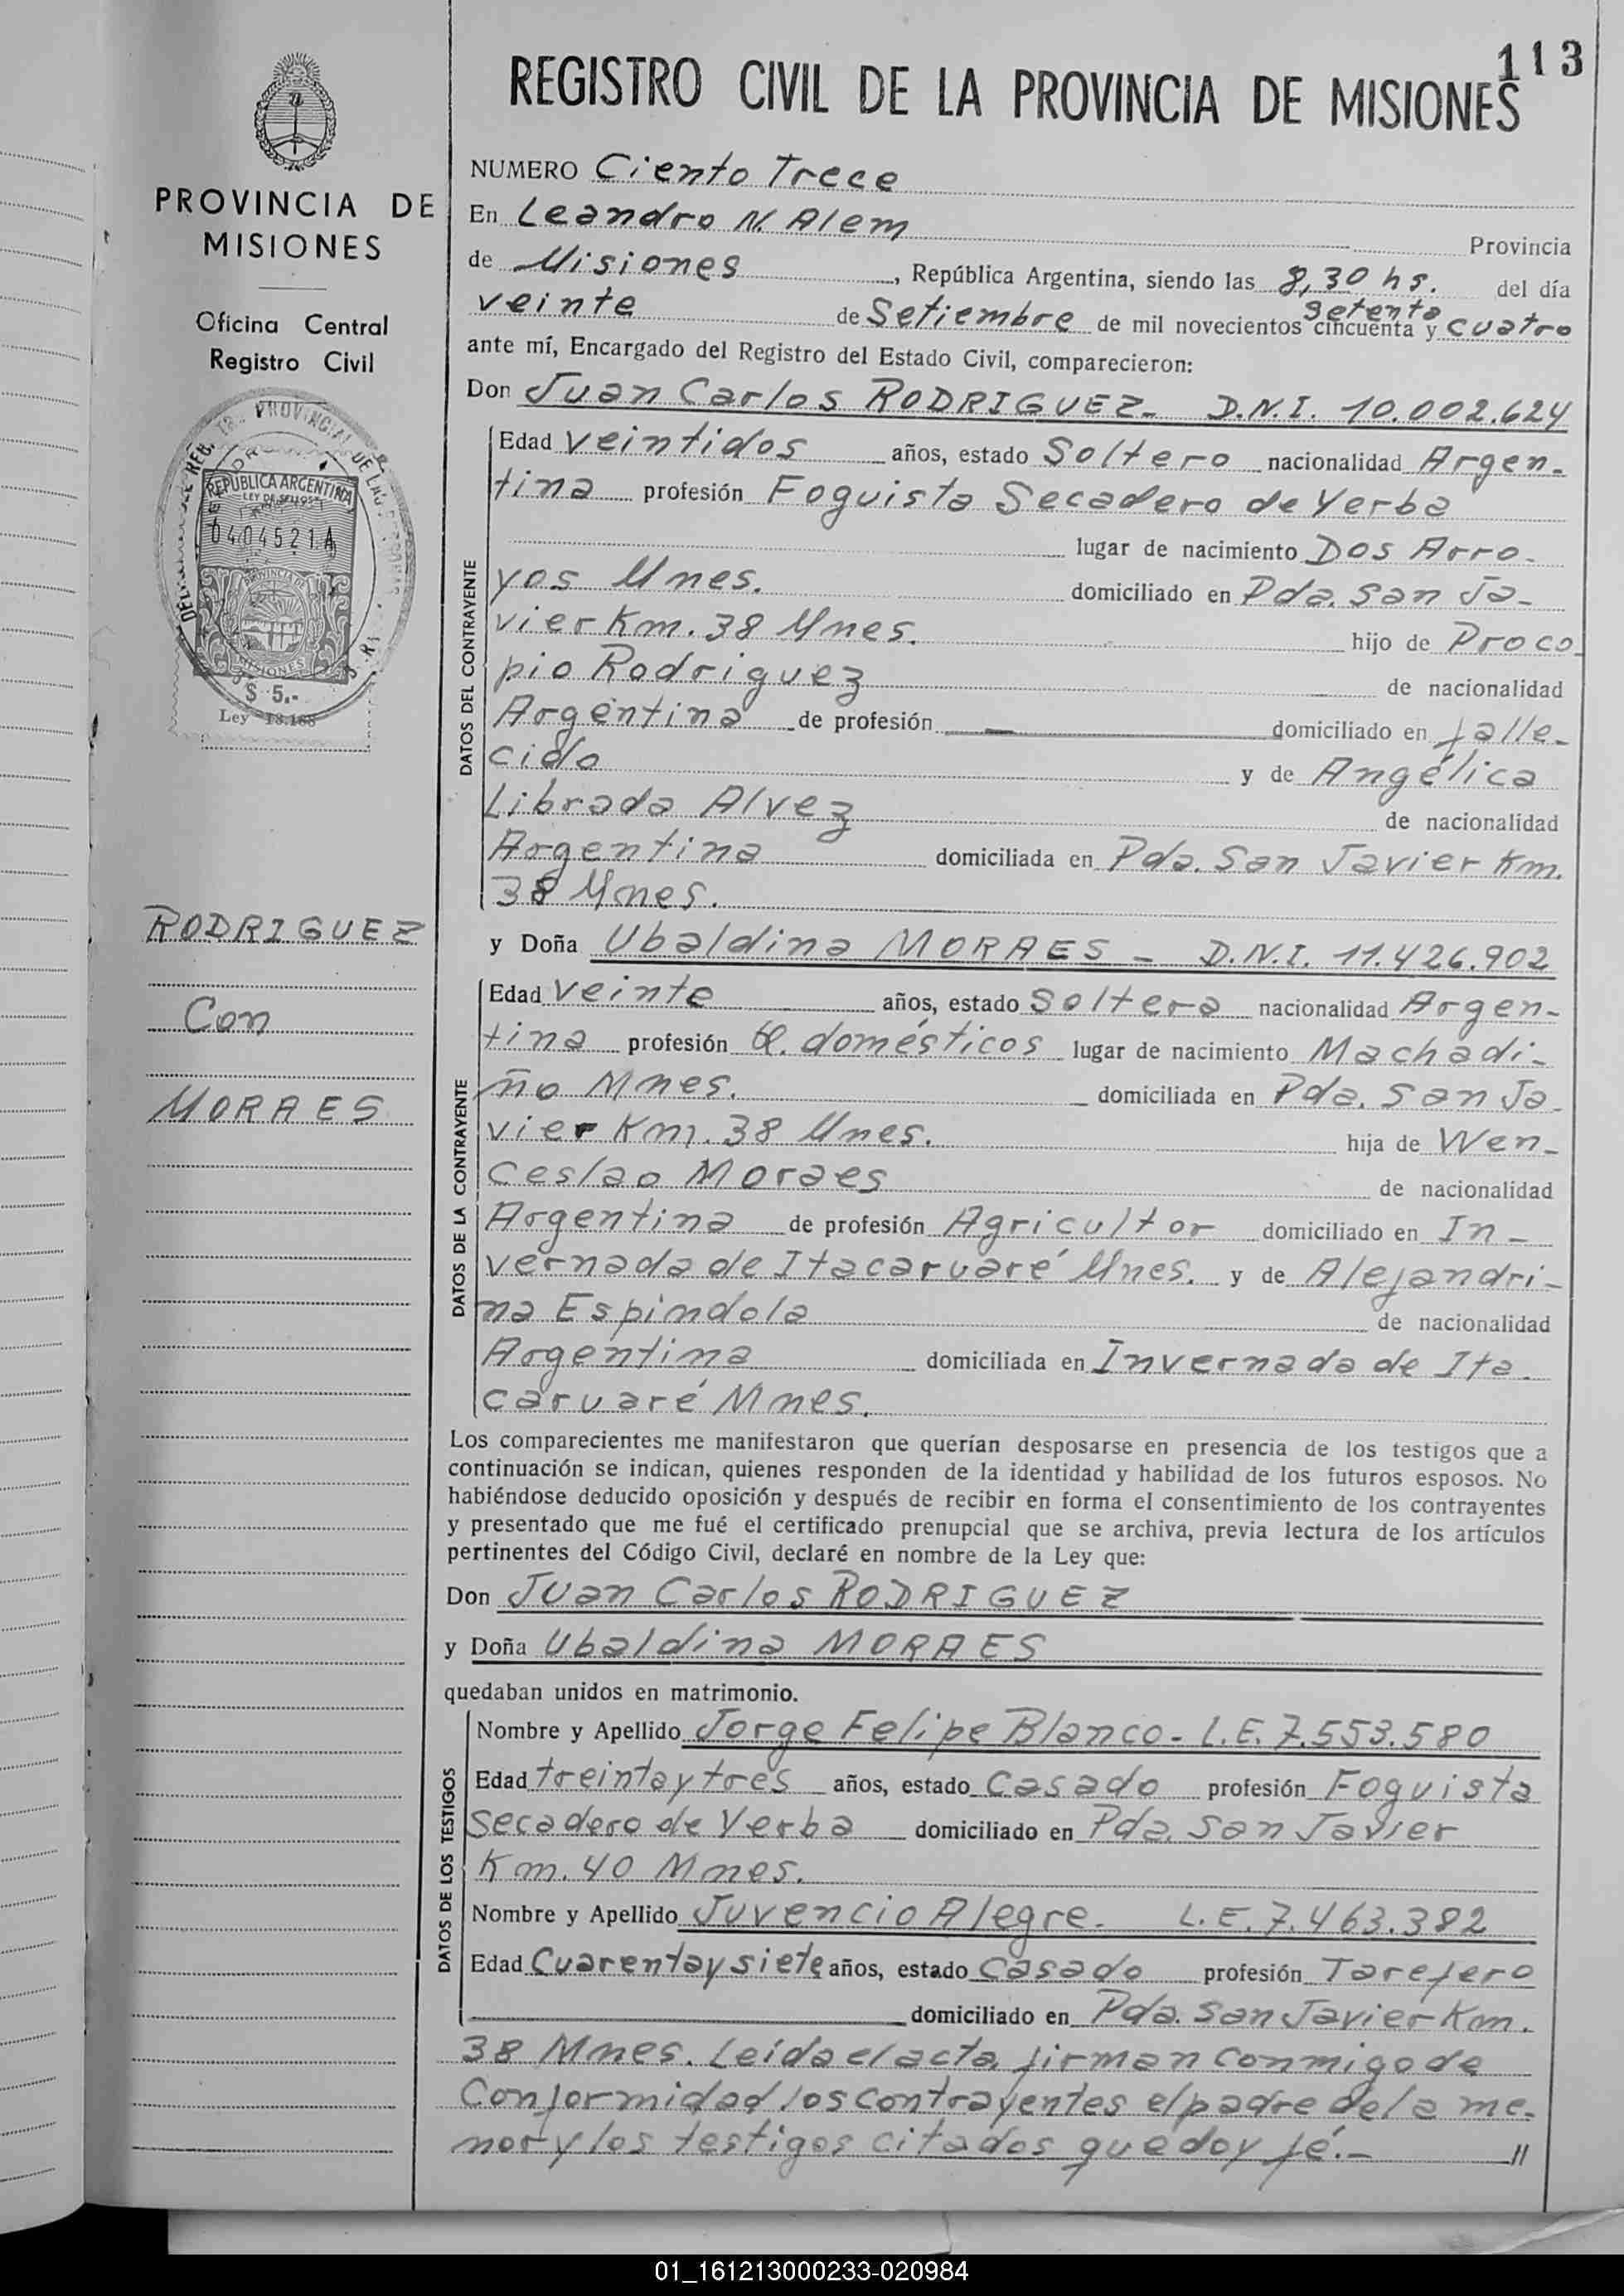 113
REGISTRO CIVIL DE LA PROVINCIA DE MISIONES
PROVINCIA DE
MISIONES
Oficina Central
Registro Civil
REPUBLICA ARGENTINA
LEY DE SELLOS
0404521A
PROVINCIA DE
MISIONES
$ 5.-
Ley 13.168
RODRIGUEZ
Con
MORAES
NUMERO Ciento Trece
En Leandro N. Alem Provincia
de Misiones, República Argentina, siendo las 8,30 hs. del día
veinte de Setiembre de mil novecientos cincuenta setenta y cuatro
ante mí, Encargado del Registro del Estado Civil, comparecieron:
Don Juan Carlos RODRIGUEZ- D.N.I. 10.002.624
DATOS DEL CONTRAYENTE
Edad veintidos años, estado Soltero nacionalidad Argen-
tina profesión Foguista Secadero de Yerba
lugar de nacimiento Dos Arro-
yos Mnes. domiciliado en Pda. San Ja-
vier Km. 38 Mnes. hijo de Proco-
pio Rodriguez de nacionalidad
Argentina de profesión — domiciliado en falle-
cido y de Angélica
Librada Alvez de nacionalidad
Argentina domiciliada en Pda. San Javier Km.
38 Mnes.
y Doña Ubaldina MORAES - D.N.I. 11.426.902
DATOS DE LA CONTRAYENTE
Edad veinte años, estado Soltera nacionalidad Argen-
tina profesión Q. domésticos lugar de nacimiento Machadi-
ño Mnes. domiciliada en Pda. San Ja-
vier Km. 38 Mnes. hija de Wen-
ceslao Moraes de nacionalidad
Argentina de profesión Agricultor domiciliado en In-
vernada de Itacaruaré Mnes. y de Alejandri-
na Espindola de nacionalidad
Argentina domiciliada en Invernada de Ita-
caruaré Mnes.
Los comparecientes me manifestaron que querían desposarse en presencia de los testigos que a
continuación se indican, quienes responden de la identidad y habilidad de los futuros esposos. No
habiéndose deducido oposición y después de recibir en forma el consentimiento de los contrayentes
y presentado que me fué el certificado prenupcial que se archiva, previa lectura de los artículos
pertinentes del Código Civil, declaré en nombre de la Ley que:
Don Juan Carlos RODRIGUEZ
y Doña Ubaldina MORAES
quedaban unidos en matrimonio.
DATOS DE LOS TESTIGOS
Nombre y Apellido Jorge Felipe Blanco- L.E. 7.553.580
Edad treinta y tres años, estado Casado profesión Foguista
Secadero de Yerba domiciliado en Pda. San Javier
Km. 40 Mnes.
Nombre y Apellido Juvencio Alegre- L.E. 7.463.382
Edad Cuarenta y siete años, estado Casado profesión Tarefero
domiciliado en Pda. San Javier Km.
38 Mnes. Leída el acta, firman conmigo de
Conformidad los contrayentes el padre de la me-
nor y los testigos citados que doy fé.- //
01_161213000233-020984